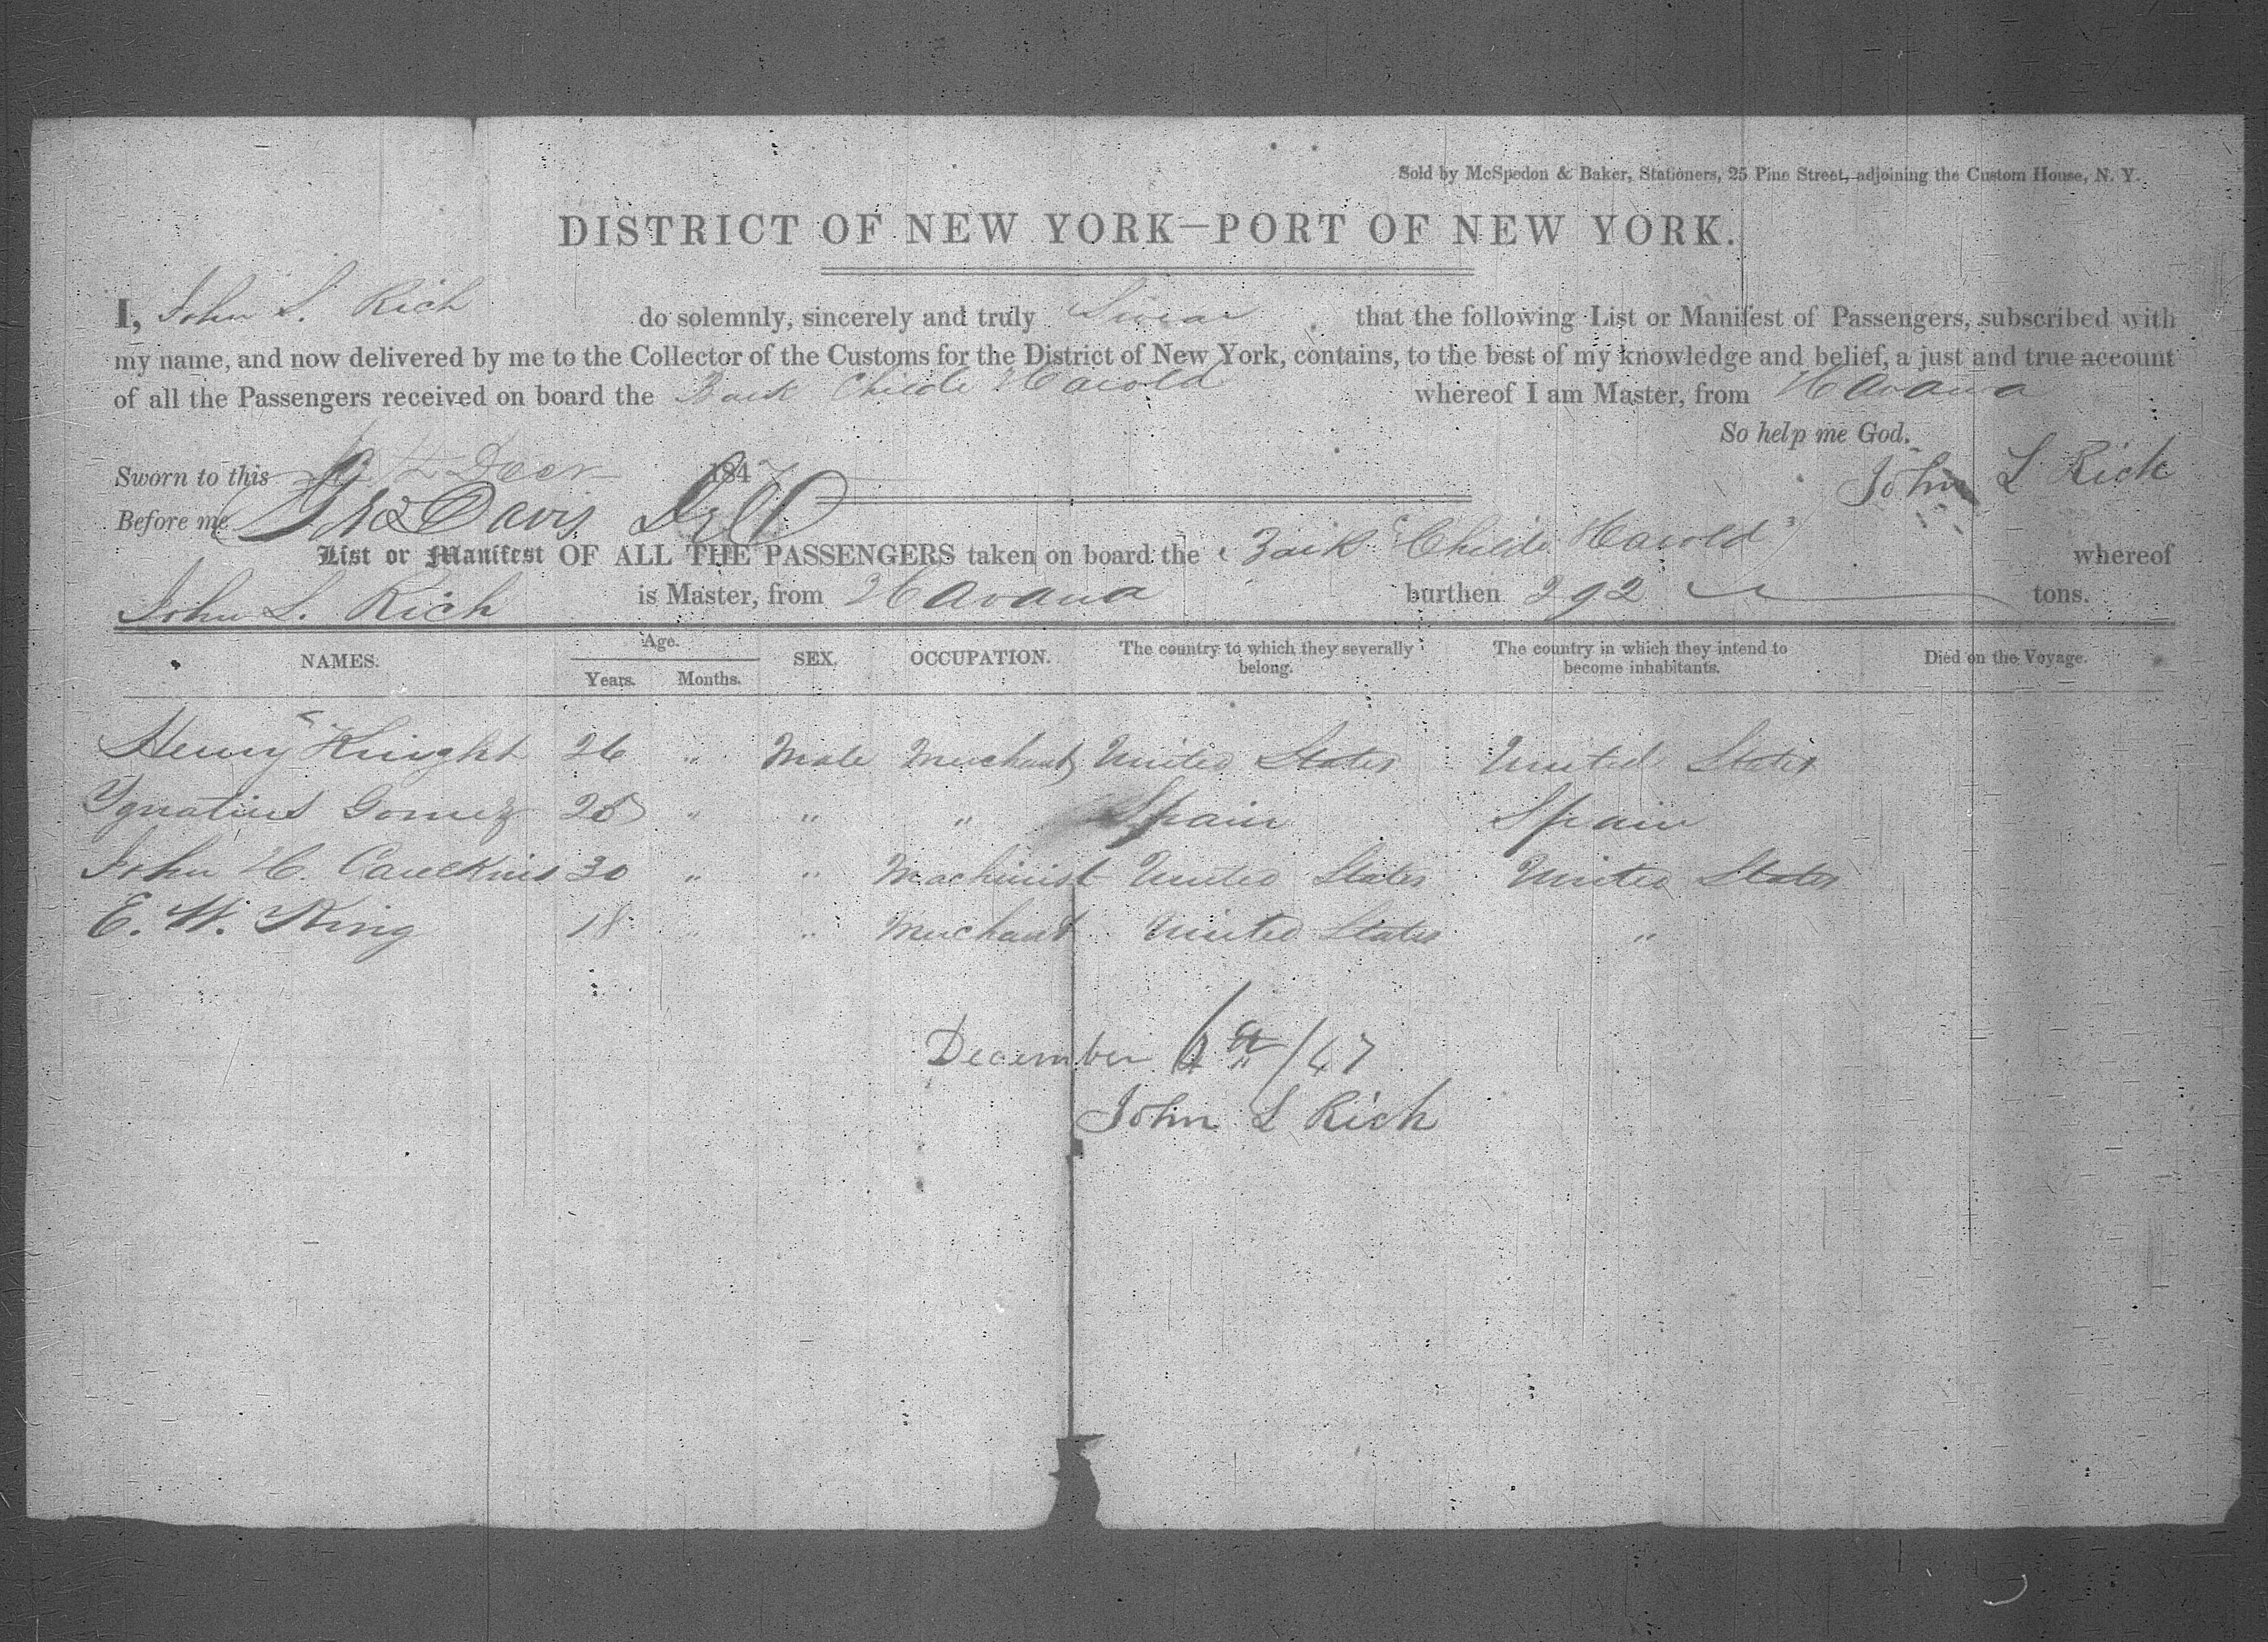 Sold by McSpedon & Baker, Stationers, 25 Pine Street, adjoining the Custom House, N. Y.
DISTRICT OF NEW YORK—PORT OF NEW YORK.
I, John L. Rich do solemnly, sincerely and truly Swear that the following List or Manifest of Passengers, subscribed with
my name, and now delivered by me to the Collector of the Customs for the District of New York, contains, to the best of my knowledge and belief, a just and true account
of all the Passengers received on board the Bark Childe Harold whereof I am Master, from Havana
So help me God.
Sworn to this Decr 1847 John L Rich
Before me Davis
List or Manifest OF ALL THE PASSENGERS taken on board the Bark "Childe Harold" whereof
John L. Rich is Master, from Havana burthen 292 tons.
NAMES. Age. Years. Months. SEX. OCCUPATION. The country to which they severally belong. The country in which they intend to become inhabitants. Died on the Voyage.
Henry Knight 26 " Male Merchant United States United States
Ygnatius Gomez 28 " " " Spain Spain
John H. Caulkins 30 " " Machinist United States United States
E. W. King 18 " " Merchant United States "
December 6th /47
John L Rich